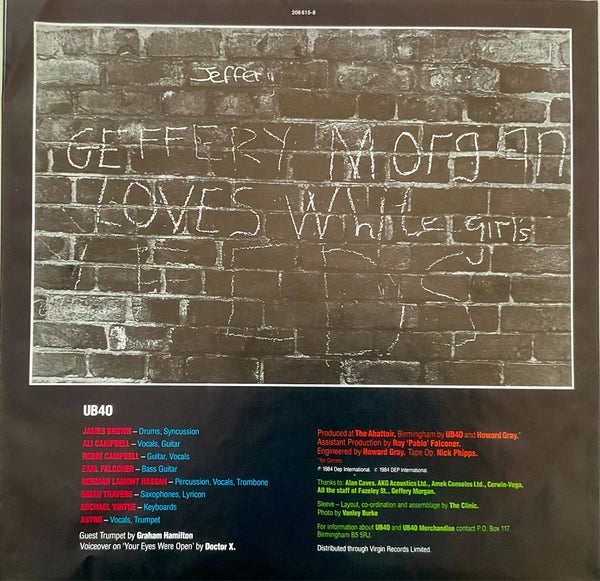 206 615-8
Jeffer
GEFFERY Morgan
LOVES White Girls
UB40
JAMES BROWN – Drums, Syncussion
ALI CAMPBELL – Vocals, Guitar
ROBIN CAMPBELL – Guitar, Vocals
EARL FALCONER – Bass Guitar
NORMAN LAMONT HASSAN – Percussion, Vocals, Trombone
BRIAN TRAVERS – Saxophones, Lyricon
MICHAEL VIRTUE – Keyboards
ASTRO – Vocals, Trumpet
Guest Trumpet by Graham Hamilton
Voiceover on 'Your Eyes Were Open' by Doctor X.
Produced at The Abattoir, Birmingham by UB40 and Howard Gray.*
Assistant Production by Ray 'Pablo' Falconer.
Engineered by Howard Gray. Tape Op. Nick Phipps.
℗ 1984 Dep International. © 1984 DEP International.
Thanks to: Alan Caves, AKG Acoustics Ltd., Amek Consoles Ltd., Cerwin-Vega,
All the staff at Fazeley St., Geffery Morgan.
Sleeve – Layout, co-ordination and assemblage by The Clinic.
Photo by Vanley Burke
For information about UB40 and UB40 Merchandise contact P.O. Box 117,
Birmingham B5 5RJ.
Distributed through Virgin Records Limited.